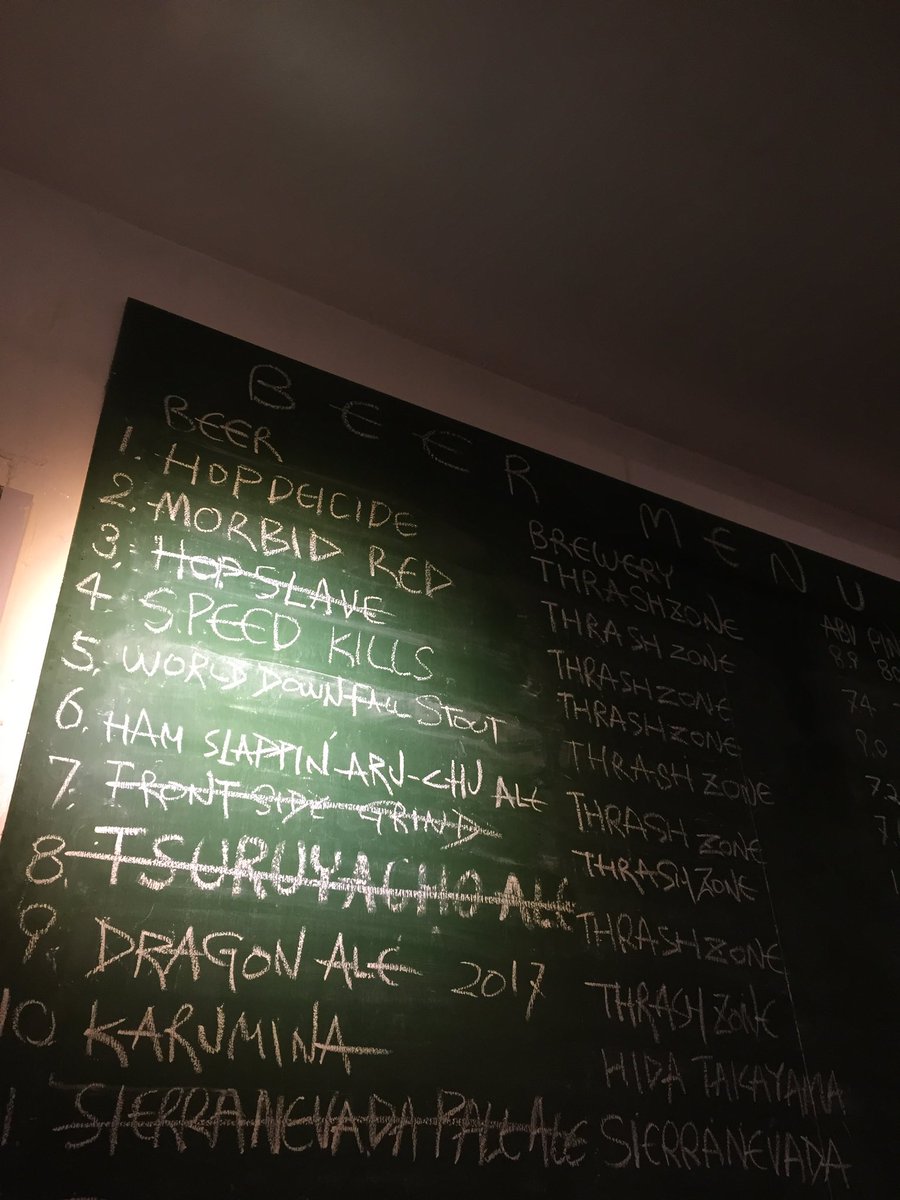 BEER MENU
BEER BREWERY ABV PIN
1. HOPDEICIDE THRASHZONE 8.9 80
2. MORBID RED THRASH ZONE 7.4
3. HOP SLAVE THRASHZONE 9.0
4. SPEED KILLS THRASHZONE 7.2
5. WORLD DOWNFALL STOUT THRASH ZONE
6. HAM SLAPPIN' ARU-CHU ALE THRASH ZONE
7. FRONT SIDE GRIND THRASHZONE
8. TSURUYACHO ALE THRASHZONE
9. DRAGON ALE 2017 THRASH ZONE
10 KARUMINA HIDA TAKAYAMA
1 SIERRANEVADA PALE ALE SIERRANEVADA